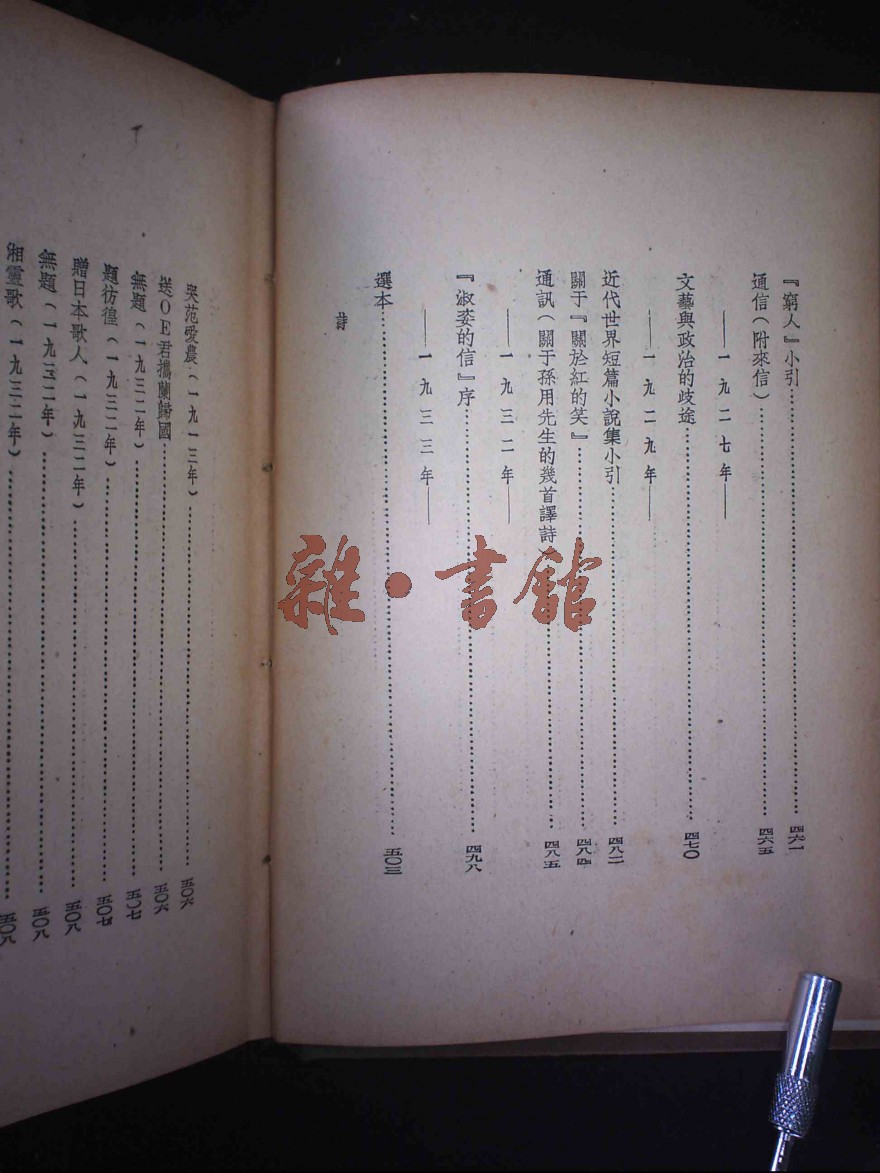 『窮人』小引……四六一
通信(附來信)……四六五
——一九二七年——
文藝與政治的歧途……四七〇
——一九二九年——
近代世界短篇小說集小引……四八二
關于『關於紅的笑』……四八四
通訊(關于孫用先生的幾首譯詩……四八五
——一九三二年——
『淑姿的信』序……四九八
——一九三三年——
選本……五〇三
詩
哭范愛農(一九一三年)……五〇六
送OE君攜蘭歸國……五〇六
無題(一九三二年)……五〇七
題彷徨(一九三二年)……五〇七
贈日本歌人(一九三二年)……五〇八
無題(一九三二年)……五〇八
湘靈歌(一九三二年)……五〇八
雜·書館